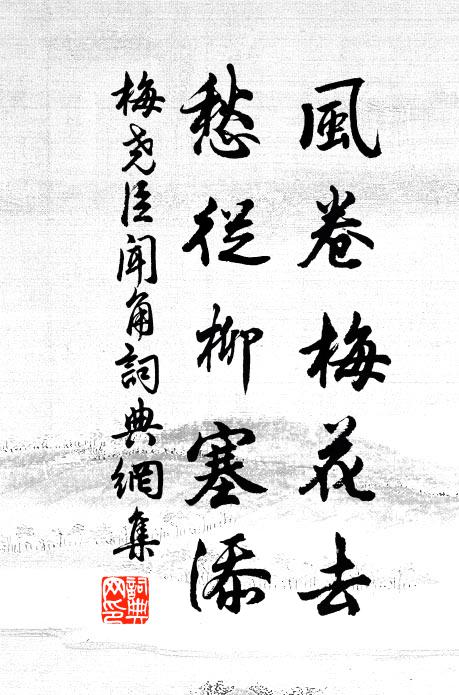 風卷梅花去
愁從柳塞添
梅堯臣聞角詞典網集
詞典網印